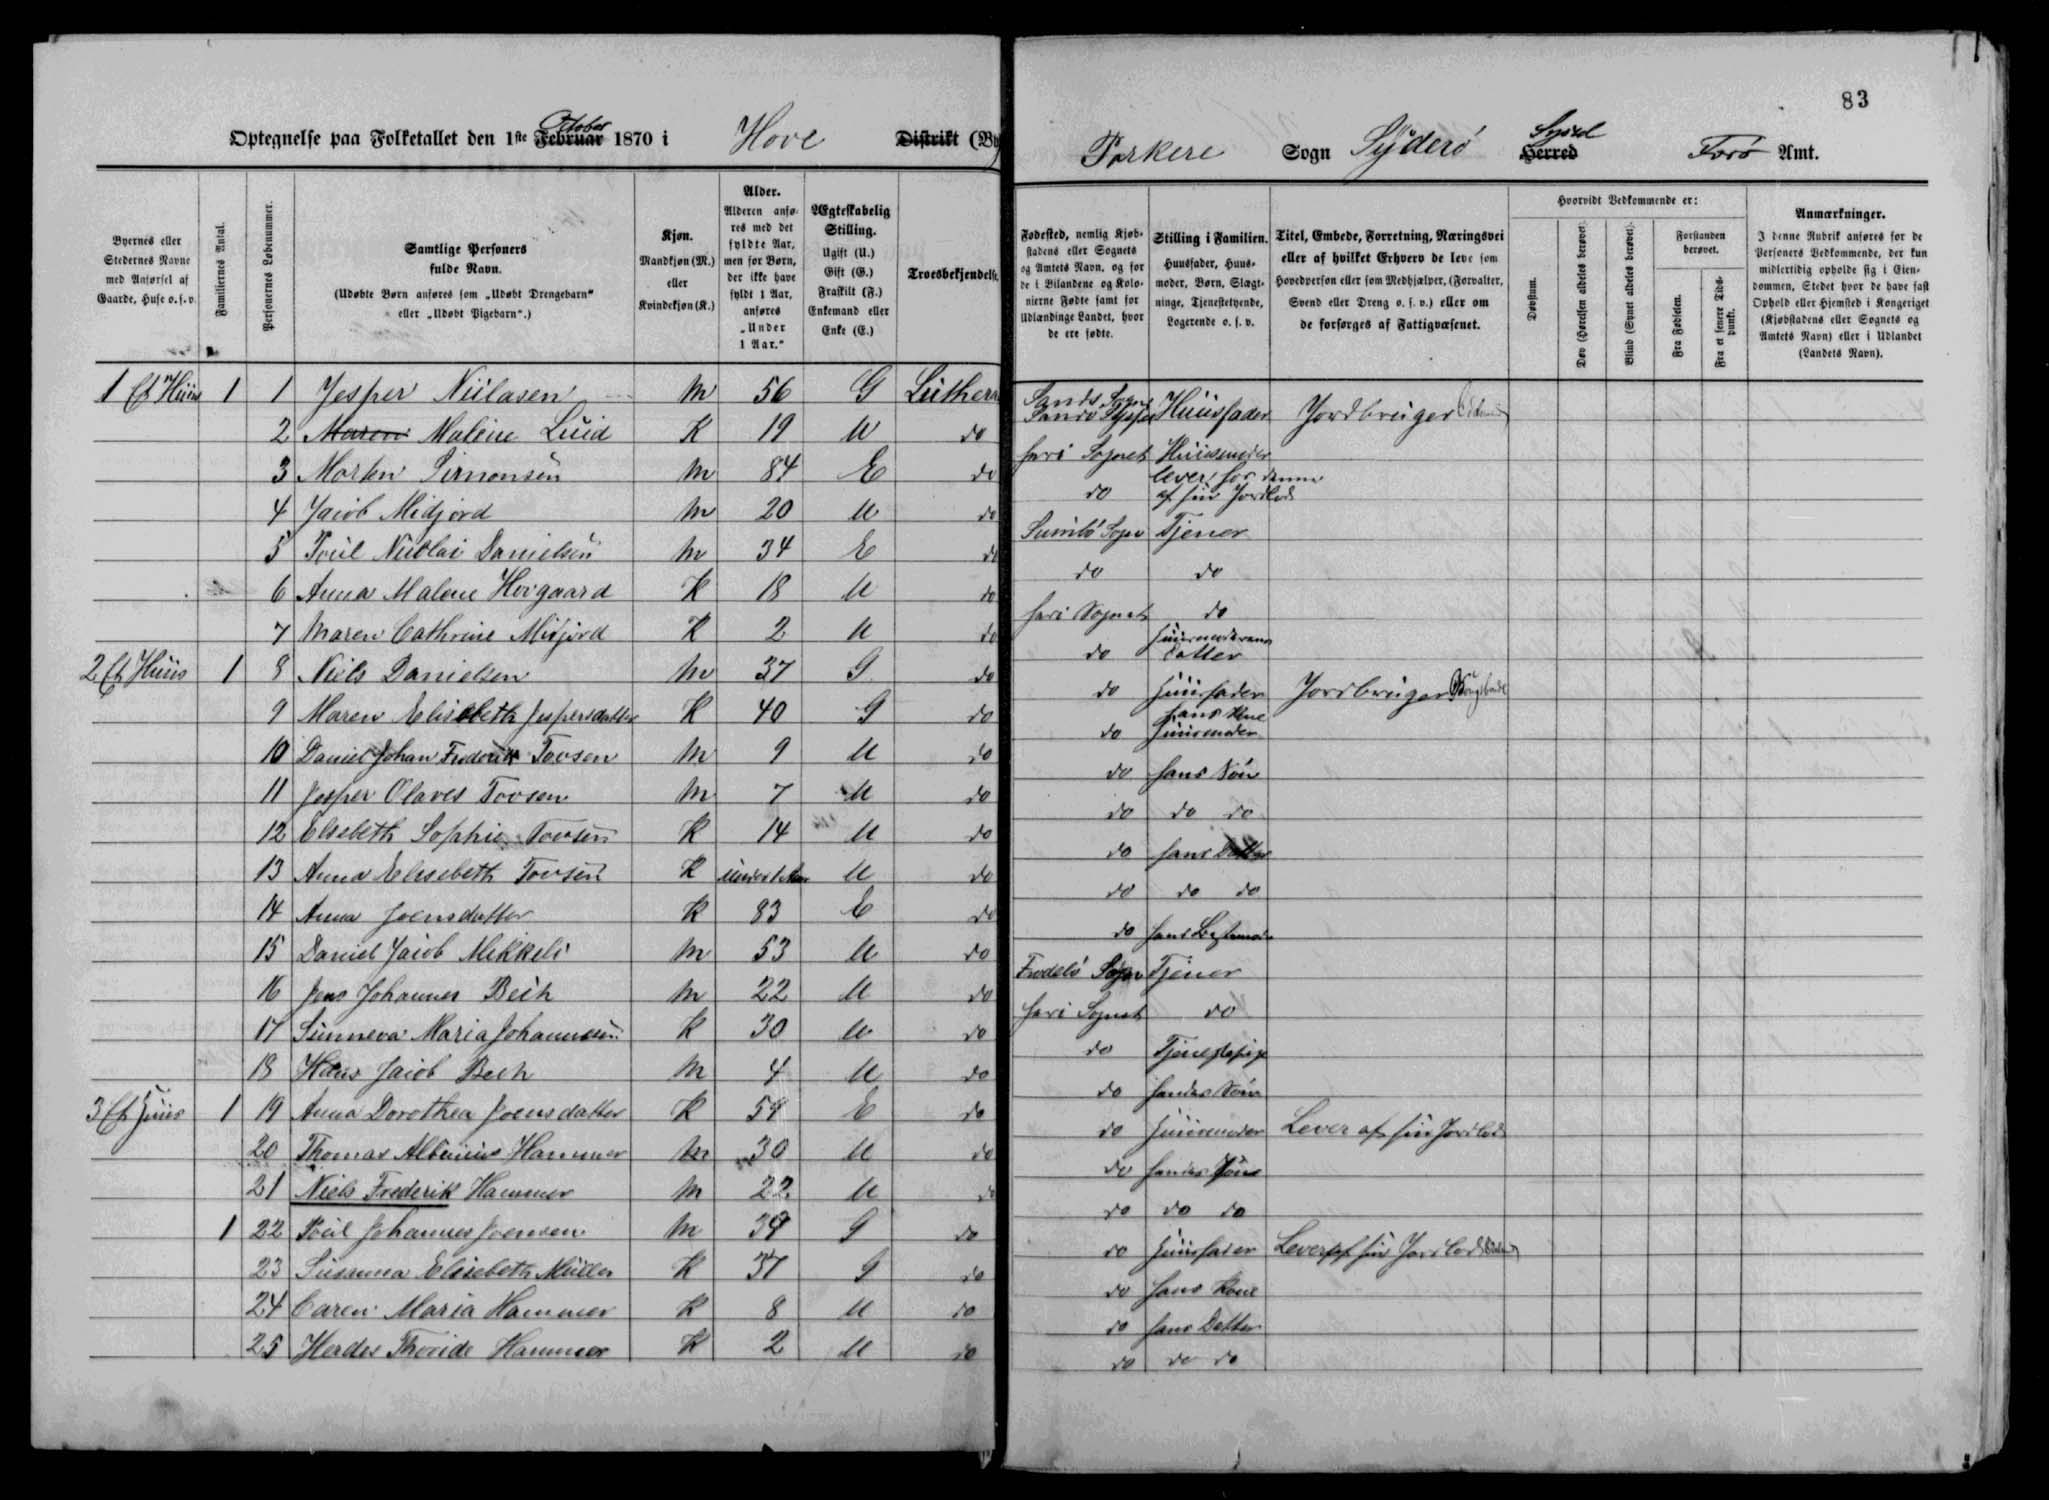 83
Optegnelse paa Folketallet den 1ste Februar October 1870 i Hove Distrikt (By
Porkere Sogn Syderö Herred Syssel Færö Amt.
Byernes eller Stedernes Navne med Anførsel af Gaarde, Huse o. s. v.
Familiernes Antal.
Personernes Løbenummer.
Samtlige Personers fulde Navn.
(Udøbte Børn anføres som „Udøbt Drengebarn" eller „Udøbt Pigebarn".)
Kjøn.
Mandkjøn (M.) eller Kvindekjøn (K.)
Alder.
Alderen anføres med det fyldte Aar, men for Børn, der ikke have fyldt 1 Aar, anføres „Under 1 Aar."
Ægteskabelig Stilling.
Ugift (U.) Gift (G.) Fraskilt (F.) Enkemand eller Enke (E.)
Troesbekjendelse
Fødested, nemlig Kjøbstadens eller Sognets og Amtets Navn, og for de i Bilandene og Kolonierne Fødte samt for Udlændinge Landet, hvor de ere fødte.
Stilling i Familien.
Huusfader, Huusmoder, Børn, Slægtninge, Tjenestetyende, Logerende o. s. v.
Titel, Embede, Forretning, Næringsvei eller af hvilket Erhverv de leve som Hovedperson eller som Medhjælper, (Forvalter, Svend eller Dreng o. s. v.) eller om de forsørges af Fattigvæsenet.
Hvorvidt Vedkommende er:
Døvstum.
Døv (Hørelsen aldeles berøvet).
Blind (Synet aldeles berøvet).
Forstanden berøvet.
Fra Fødselen.
Fra et senere Tidspunkt.
Anmærkninger.
I denne Rubrik anføres for de Personers Vedkommende, der kun midlertidig opholde sig i Eiendommen, Stedet hvor de have fast Ophold eller Hjemsted i Kongeriget (Kjøbstadens eller Sognets og Amtets Navn) eller i Udlandet (Landets Navn).
1 Et Huus 1 1 Jesper Niclasen M 56 G Luthersk Sands Sogn Sandö Syssel Huusfader Jordbruger
2 Maren Malene Luid K 19 U do heri Sognet Huusmoder
3 Morten Simonsen M 84 E do do lever hos denne af sin Jordlod
4 Jacob Midjord M 20 U do Sumbö Sogn Tjener
5 Poul Nicolai Danielsen M 34 E do do do
6 Anna Malene Hovgaard K 18 U do heri Sognet do
7 Maren Cathrine Midjord K 2 U do do Huusmoderens Datter
2 Et Huus 1 8 Niels Danielsen M 37 G do do Huusfader Jordbruger Kongsbonde
9 Maren Elisebeth Jespersdatter K 40 G do do hans Kone Huusmoder
10 Daniel Johan Frederik Tovsen M 9 U do do hans Sön
11 Jesper Olaves Tovsen M 7 U do do do do
12 Elsebeth Sophie Tovsen K 14 U do do hans Datter
13 Anna Elisebeth Tovsen K under 1 Aar U do do do do
14 Anna Joensdatter K 83 E do do hans Bestemoder
15 Daniel Jacob Mikkels M 53 U do Frodebö Sogn Tjener
16 Jens Johannes Bech M 22 U do heri Sognet do
17 Sunneva Maria Johannesen K 30 U do do Tjenestepige
18 Hans Jacob Bech M 4 U do do hendes Sön
3 Et Huus 1 19 Anna Dorothea Joensdatter K 59 E do do Huusmoder Lever af sin Jordlod
20 Thomas Albinius Hammer M 30 U do do hendes Sön
21 Niels Frederik Hammer M 22 U do do do do
1 22 Poul Johannes Joensen M 39 G do do Huusfader Lever af sin Jordlod
23 Susanna Elisebeth Müller K 37 G do do hans Kone
24 Caren Maria Hammer K 8 U do do hans Datter
25 Herdes Thovide Hammer K 2 U do do do do